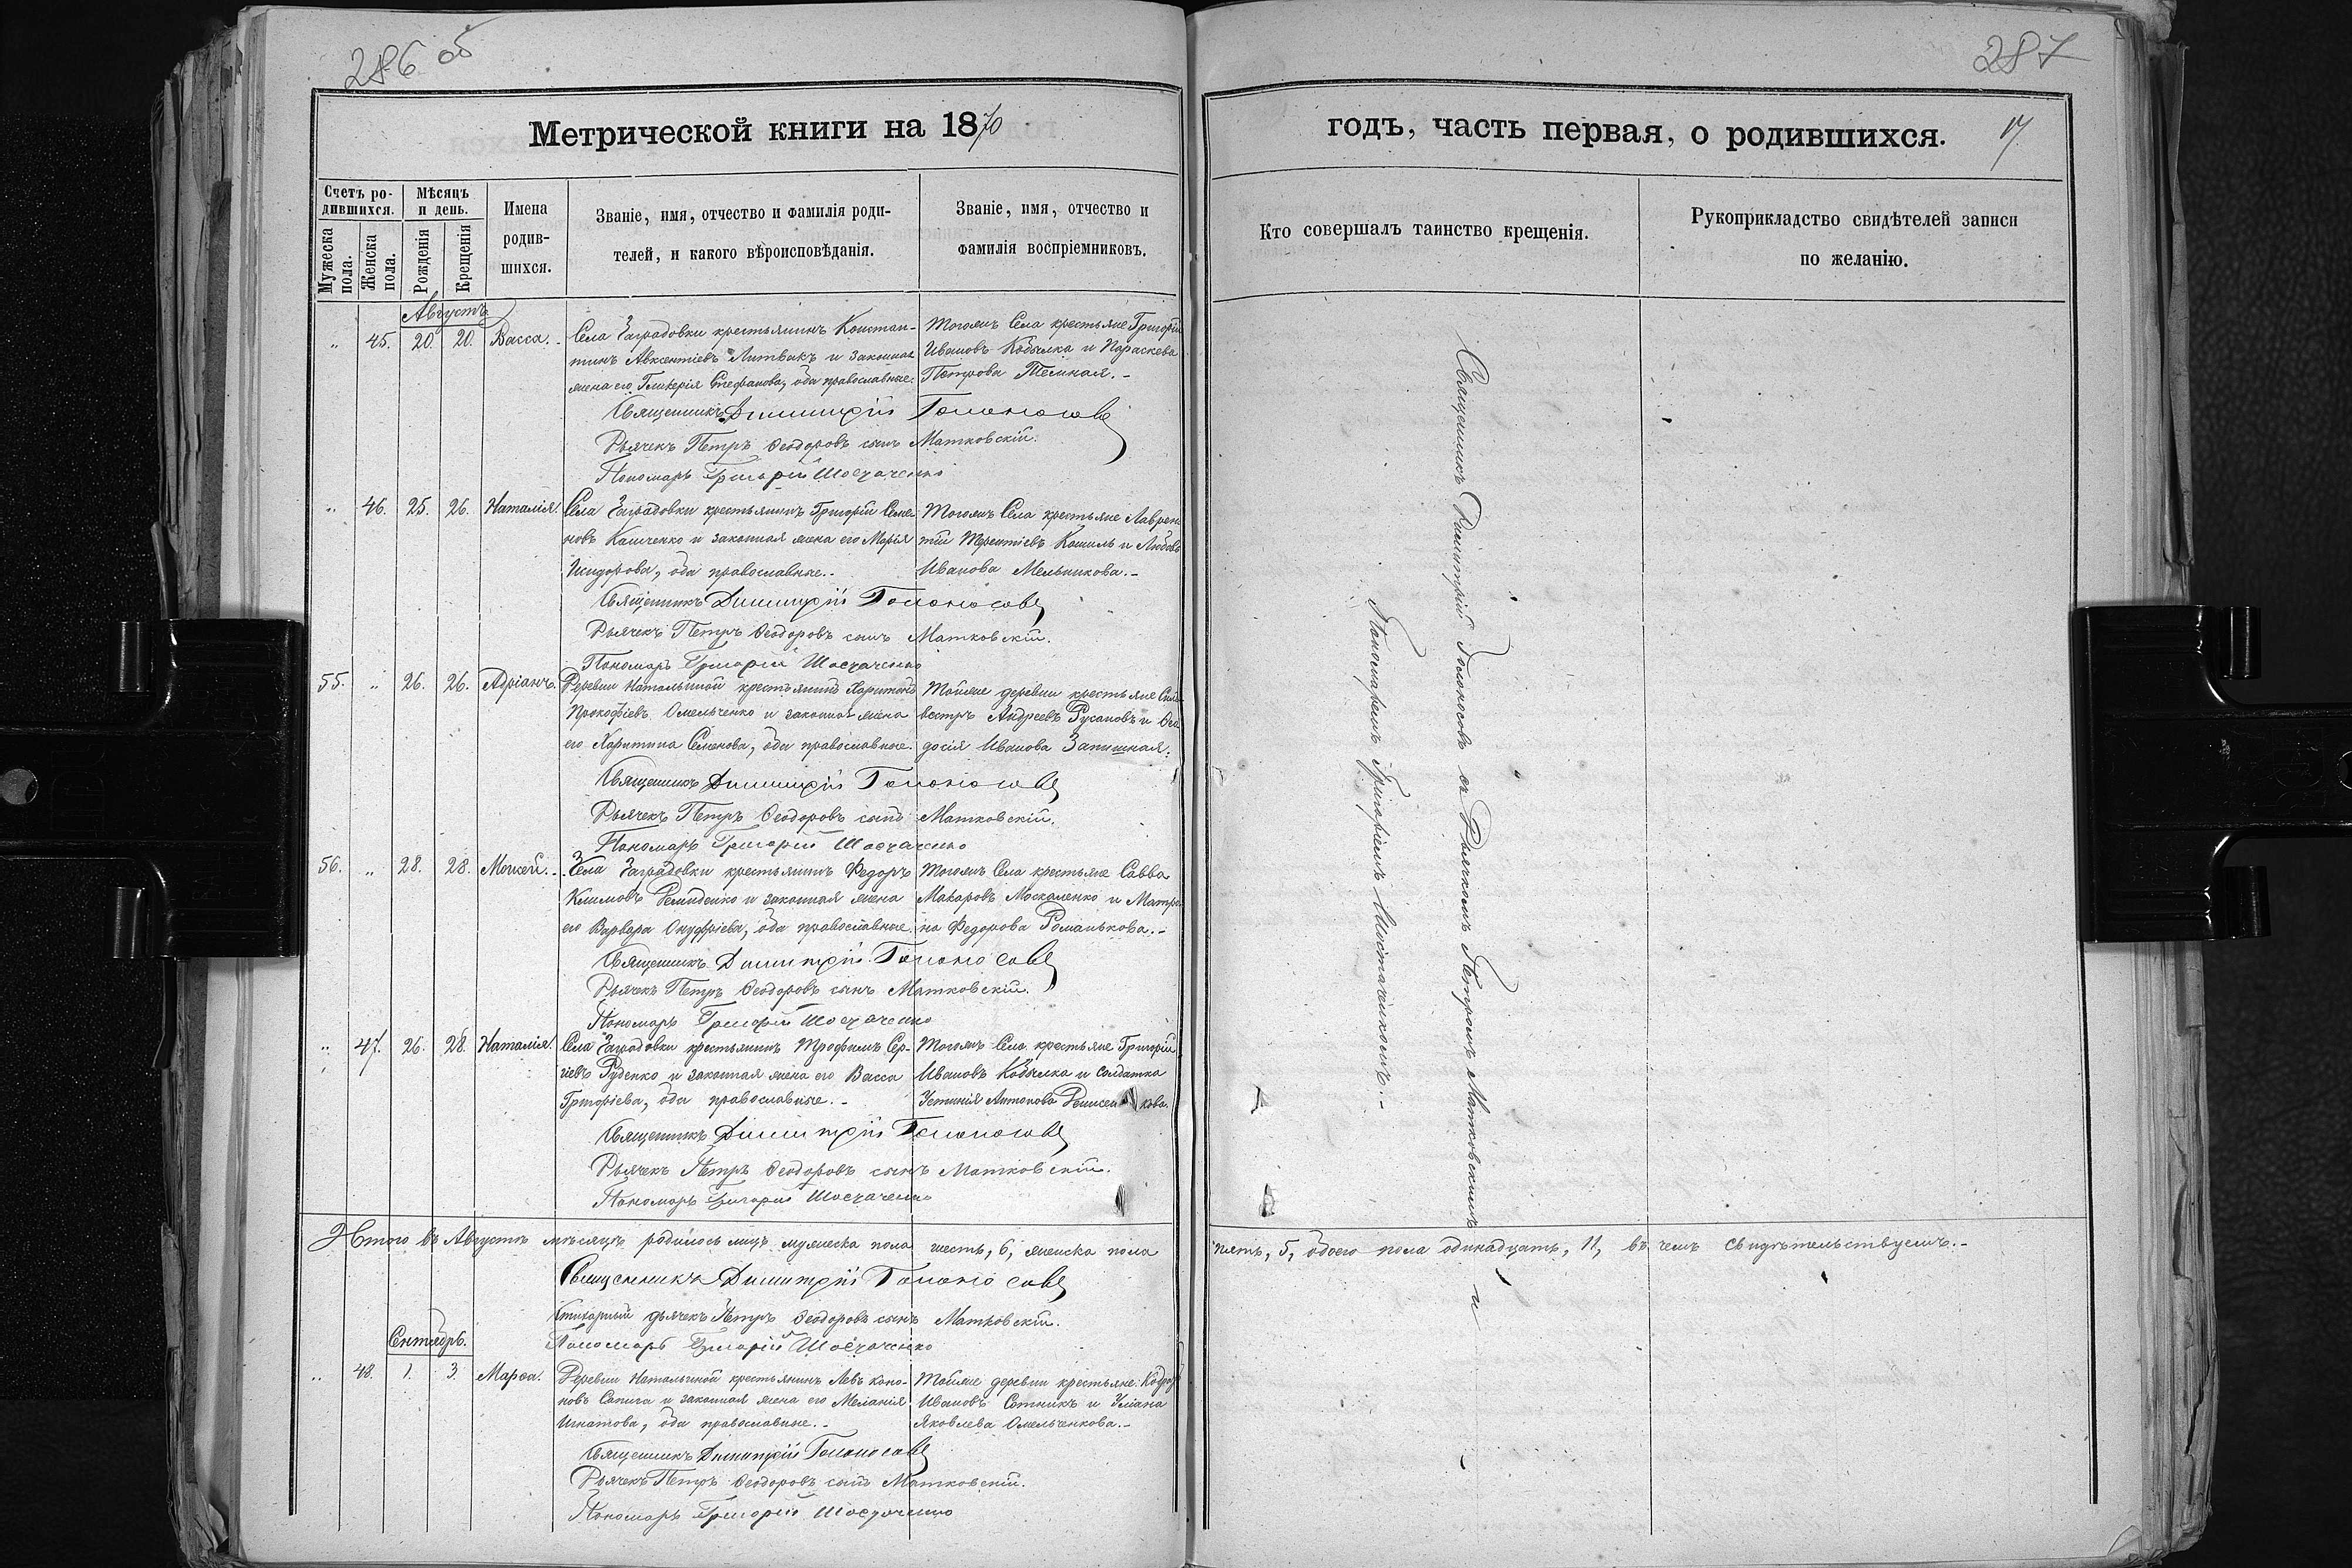 286 об
Метрической книги на 1870
Счетъ ро-
дившихся.
Мѣсяцъ
и день.
Мужеска
пола.
Женска
пола.
Рожденія
Крещенія
Имена
родив-
шихся.
Званіе, имя, отчество и фамилія роди-
телей, и какого вѣроисповѣданія.
Званіе, имя, отчество и
фамилія воспріемниковъ.
Августъ
" 45. 20. 20. Васса.
Села Заградовки крестьянинъ Констан-
тинъ Авксентіевъ Литвакъ и законная
жена его Гликерія Стефанова, оба православные.
Тогожъ Села крестьяне Григорій
Ивановъ Кобылка и Параскева
Петрова Темная.-
Священникъ Димитрій Голоносовъ
Дьячекъ Петръ Ѳеодоровъ сынъ Матковскій.
Пономарь Григорій Шостаченко
" 46. 25. 26. Наталія.
Села Заградовки крестьянинъ Григорій Семе-
новъ Каличенко и законная жена его Марія
Исидорова, оба православные.-
Тогожъ Села крестьяне Лаврен-
тій Терентіевъ Кошиль и Любовь
Иванова Мельникова.-
Священникъ Димитрій Голоносовъ
Дьячекъ Петръ Ѳеодоровъ сынъ Матковскій.
Пономарь Григорій Шостаченко
55. " 26. 26. Адріанъ.
Деревни Натальиной крестьянинъ Харитонъ
Прокофіевъ Омельченко и законная жена
его Харитина Семенова, оба православные.
Тойже деревни крестьяне Силь-
вестръ Андреевъ Русановъ и Ѳео-
досія Иванова Запишная.
Священникъ Димитрій Голоносовъ
Дьячекъ Петръ Ѳеодоровъ сынъ Матковскій.
Пономарь Григорій Шостаченко
56. " 28. 28. Моисей.
Села Заградовки крестьянинъ Федоръ
Климовъ Демиденко и законная жена
его Варвара Онуфріева, оба православные.
Тогожъ Села крестьяне Савва
Макаровъ Москаленко и Матро-
на Федорова Романькова.-
Священникъ Димитрій Голоносовъ
Дьячекъ Петръ Ѳеодоровъ сынъ Матковскій.
Пономарь Григорій Шостаченко
" 47. 26. 28. Наталія.
Села Заградовки крестьянинъ Трофимъ Сер-
гіевъ Руденко и законная жена его Васса
Григоріева, оба православные.-
Тогожъ Села крестьяне Григорій
Ивановъ Кобылка и солдатка
Устинія Антонова
Священникъ Димитрій Голоносовъ
Дьячекъ Петръ Ѳеодоровъ сынъ Матковскій.
Пономарь Григорій Шостаченко
Итого въ Августѣ мѣсяцѣ родилось лицъ мужеска пола шесть, 6, женска пола
Священникъ Димитрій Голоносовъ
Стихарный дьячекъ Петръ Ѳеодоровъ сынъ Матковскій.
Пономарь Григорій Шостаченко
Сентябрь.
" 48. 1. 3. Марѳа.
Деревни Натальиной крестьянинъ Левъ Коно-
новъ Сапига и законная жена его Меланія
Игнатова, оба православные.-
Тойже деревни крестьяне
Ивановъ Сотникъ и Уліана
Яковлева Омельченкова.-
Священникъ Димитрій Голоносовъ
Дьячекъ Петръ Ѳеодоровъ сынъ Матковскій.
Пономарь Григорій Шостаченко
287
годъ, часть первая, о родившихся. 17
Кто совершалъ таинство крещенія.
Рукоприкладство свидѣтелей записи
по желанію.
Священникъ Димитрій Голоносовъ съ Дьячкомъ Петромъ Матковскимъ и
Пономаремъ Григоріемъ Шостаченкомъ.-
пять, 5, обоего пола одинадцать, 11, въ чемъ свидѣтельствуемъ.-